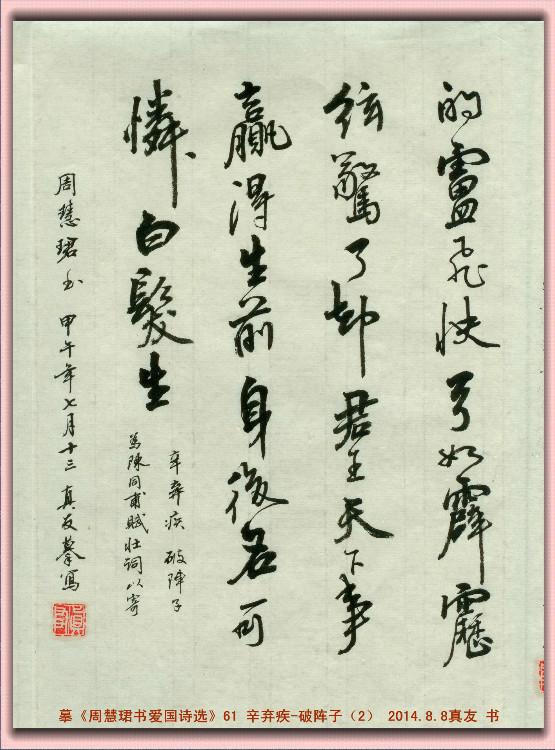 的盧飛快弓如霹靂
弦驚了却君王天下事
贏得生前身後名可
憐白髮生
辛弃疾 破陣子
為陳同甫賦壯詞以寄
周慧珺书 甲午年七月十三 真友摹寫
摹《周慧珺书爱国诗选》61 辛弃疾-破阵子（2） 2014.8.8真友 书